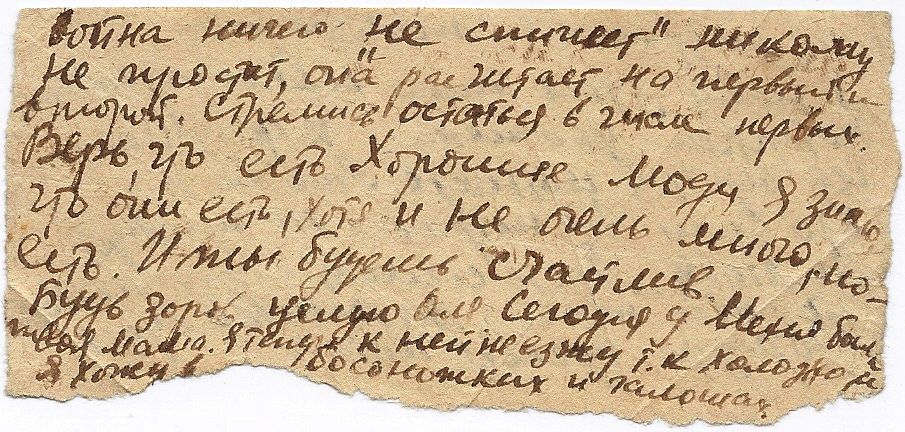 война ничего не спишет" никому
не простит, она расчитает на первый и
второй. Стремись остаться в числе первых.
Верь, что есть Хорошие люди, я знаю
что они есть, хотя и не очень много, но
есть. И ты будешь счастлив.
Будь здоров целую Оля Сегодня у меня была
твоя мама. Я теперь к ней не езжу т.к холодно и
я хожу в босоножках и галошах.